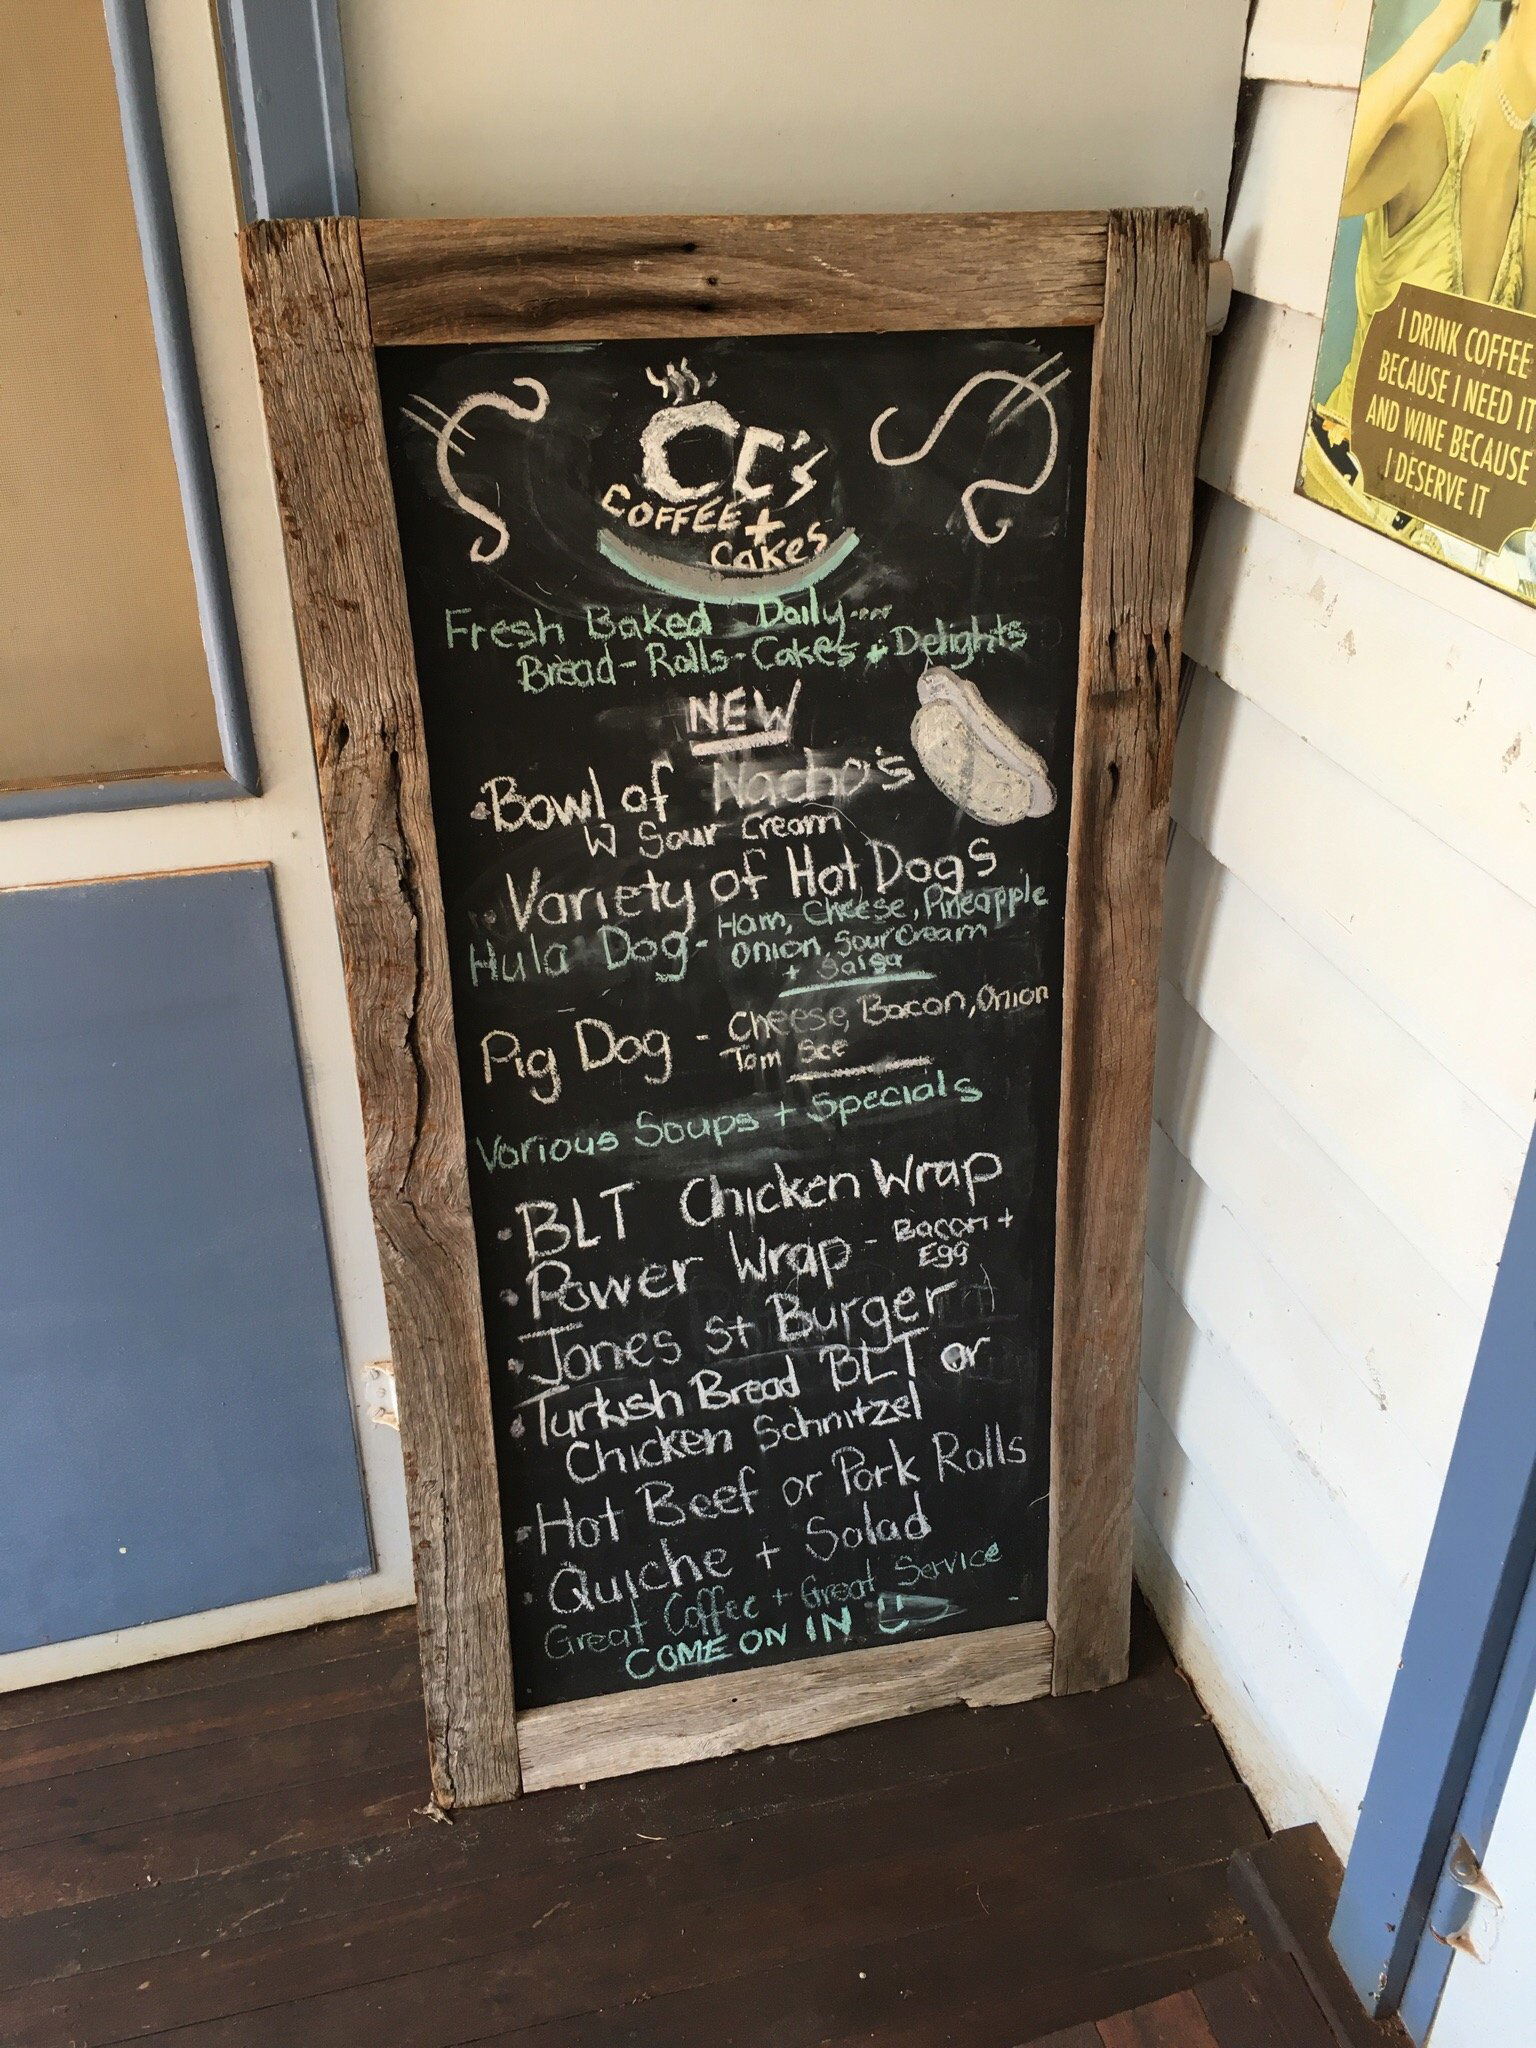 CC's
COFFEE +
Cakes
Fresh Baked Daily....
Bread - Rolls - Cakes + Delights
NEW
• Bowl of Nacho's
W Sour Cream
• Variety of Hot Dogs
Hula Dog - Ham, Cheese, Pineapple
Onion, Sour Cream
+ Salsa
Pig Dog - Cheese, Bacon, Onion
Tom Sce
Various Soups + Specials
• BLT Chicken Wrap
• Power Wrap - Bacon +
Egg
• Jones St Burger
• Turkish Bread BLT or
Chicken Schnitzel
• Hot Beef or Pork Rolls
• Quiche + Salad
Great Coffee + Great Service
COME ON IN
I DRINK COFFEE
BECAUSE I NEED IT
AND WINE BECAUSE
I DESERVE IT